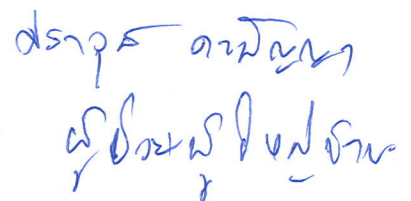 ศราวุธ ดาปัญญา
ผู้ช่วยผู้ใหญ่บ้าน